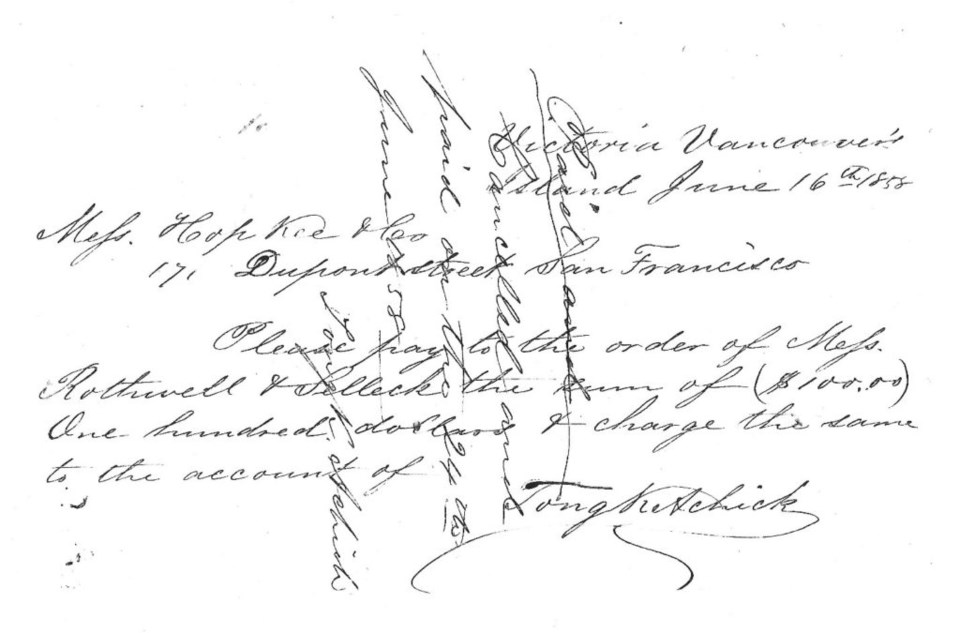 Victoria Vancouver's
Island June 16th 1858
Mess. Hop Kee & Co
171 Dupont street San Francisco
Please pay to the order of Mess.
Rothwell & Selleck the sum of ($100.00)
One hundred dollars & charge the same
to the account of
Tong K Achick
Paid and
Cancelled and
paid on the 24th
June 1858
Tong K Achick